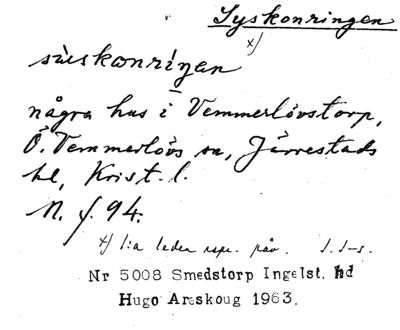 Syskonringen
x/
süskonriŋen
några hus i Vemmerlövstorp,
Ö. Vemmerlövs sn, Järrestads
hd, Krist. l.
N. f. 94.
x/ 1:a leden rspr. påv. S. S-s.
Nr 5008 Smedstorp Ingelst. hd
Hugo Areskoug 1963.